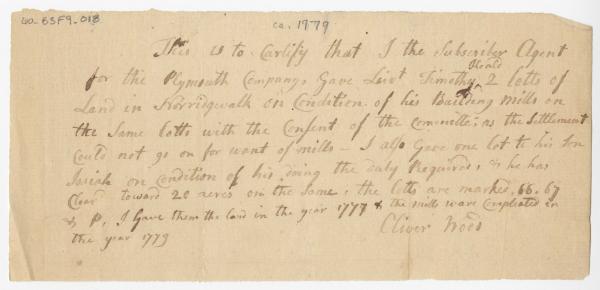 40.83F9.018
ca. 1779
This is to Cartify that I the Subscriber Agent
for the Plymouth Company, Gave Liut Timothy Heald 2 lotts of
Land in Norridgwalk on Condition of his Building mills on
the Same lotts with the Consent of the Committe: as the Settlement
Could not go on for want of mills - I also Gave one lot to his Son
Josiah on Condition of his doing the duty Required, & he has
Clear toward 20 acres on the Same, the lotts are marked, 66. 67
& P, I Gave them the land in the year 1777 & the mills ware Compleated in
the year 1779
Oliver Wood